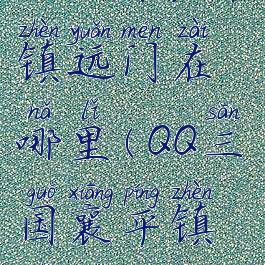 zhèn yuǎn mén zài
镇远门在
nǎ lǐ sān
哪里(QQ三
guó xiāng píng zhèn
国襄平镇